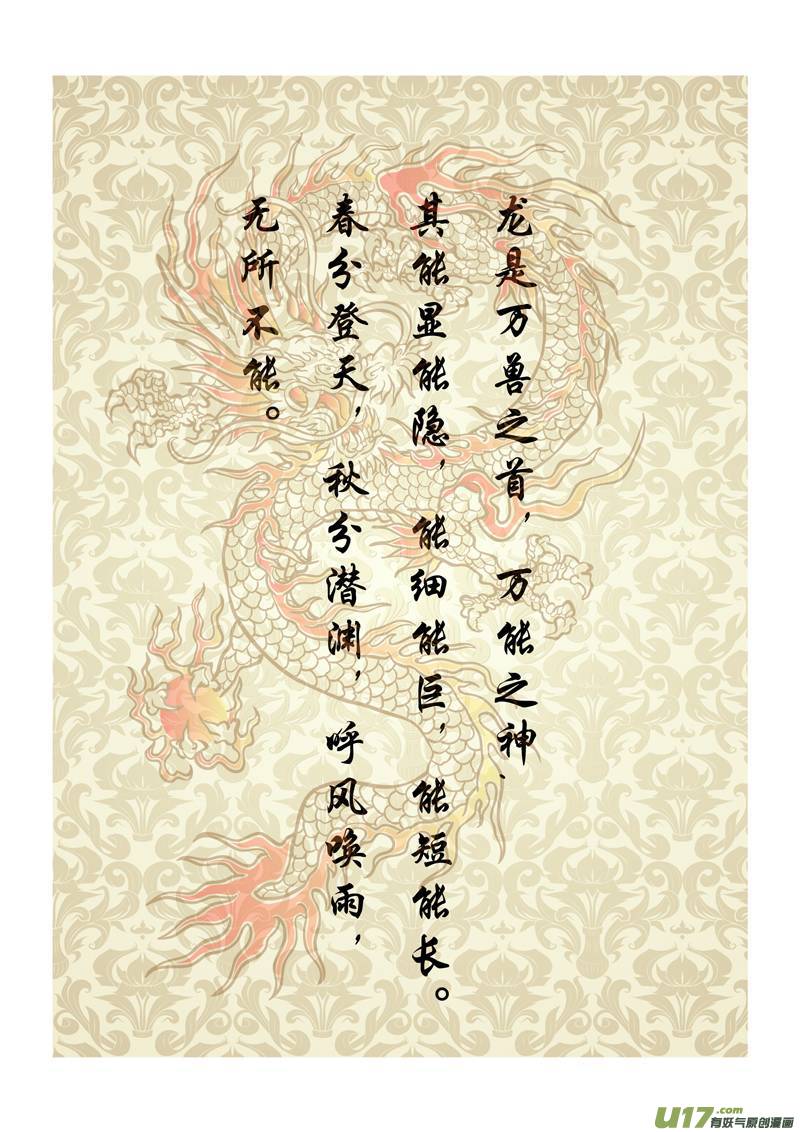 龙是万兽之首，万能之神、
其能显能隐，能细能巨，能短能长。
春分登天，秋分潜渊，呼风唤雨，
无所不能。
U17.com
有妖气原创漫画